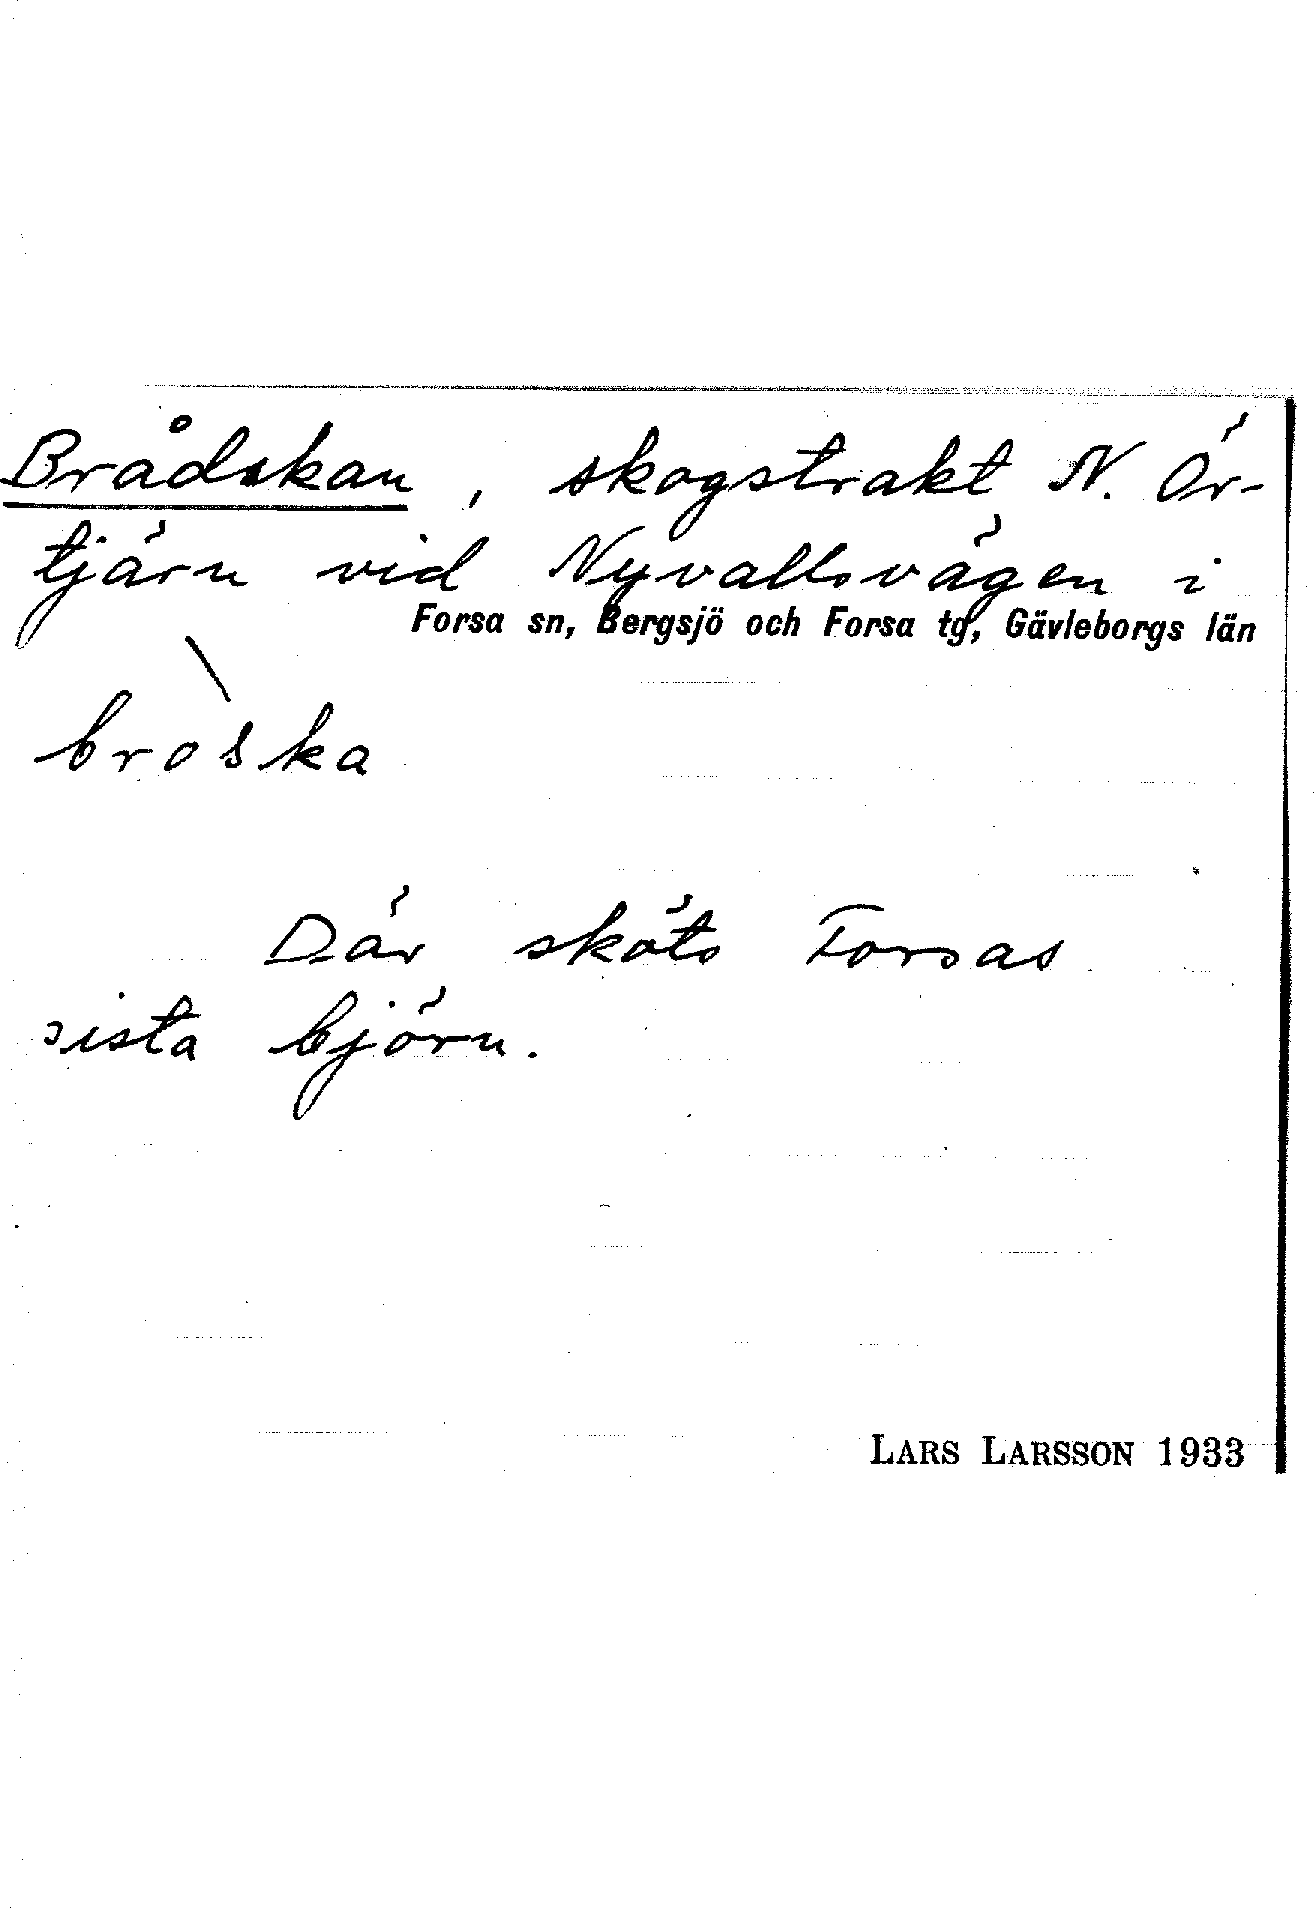 Brådskan, skogstrakt N. Ör-
tjärn vid Nyvallsvägen i
Forsa sn, Bergsjö och Forsa tg, Gävleborgs län
bròska
Där sköts Forsas
sista björn.
LARS LARSSON 1933